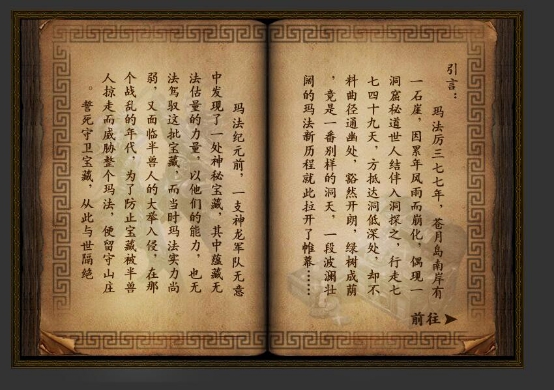 引言：
玛法厉三七七年，苍月岛南岸有
一石崖，因累年风雨而崩化，偶现一
洞窟秘道世人结伴入洞探之，行走七
七四十九天，方抵达洞低深处，却不
料曲径通幽处，豁然开朗，绿树成荫
，竟是一番别样的洞天，一段波澜壮
阔的玛法新历程就此拉开了帷幕……
前往
玛法纪元前，一支神龙军队无意
中发现了一处神秘宝藏，其中蕴藏无
法估量的力量，以他们的能力，也无
法驾驭这批宝藏，而当时玛法实力尚
弱，又面临半兽人的大举入侵，在那
个战乱的年代，为了防止宝藏被半兽
人掠走而威胁整个玛法，便留守山庄
。誓死守卫宝藏，从此与世隔绝